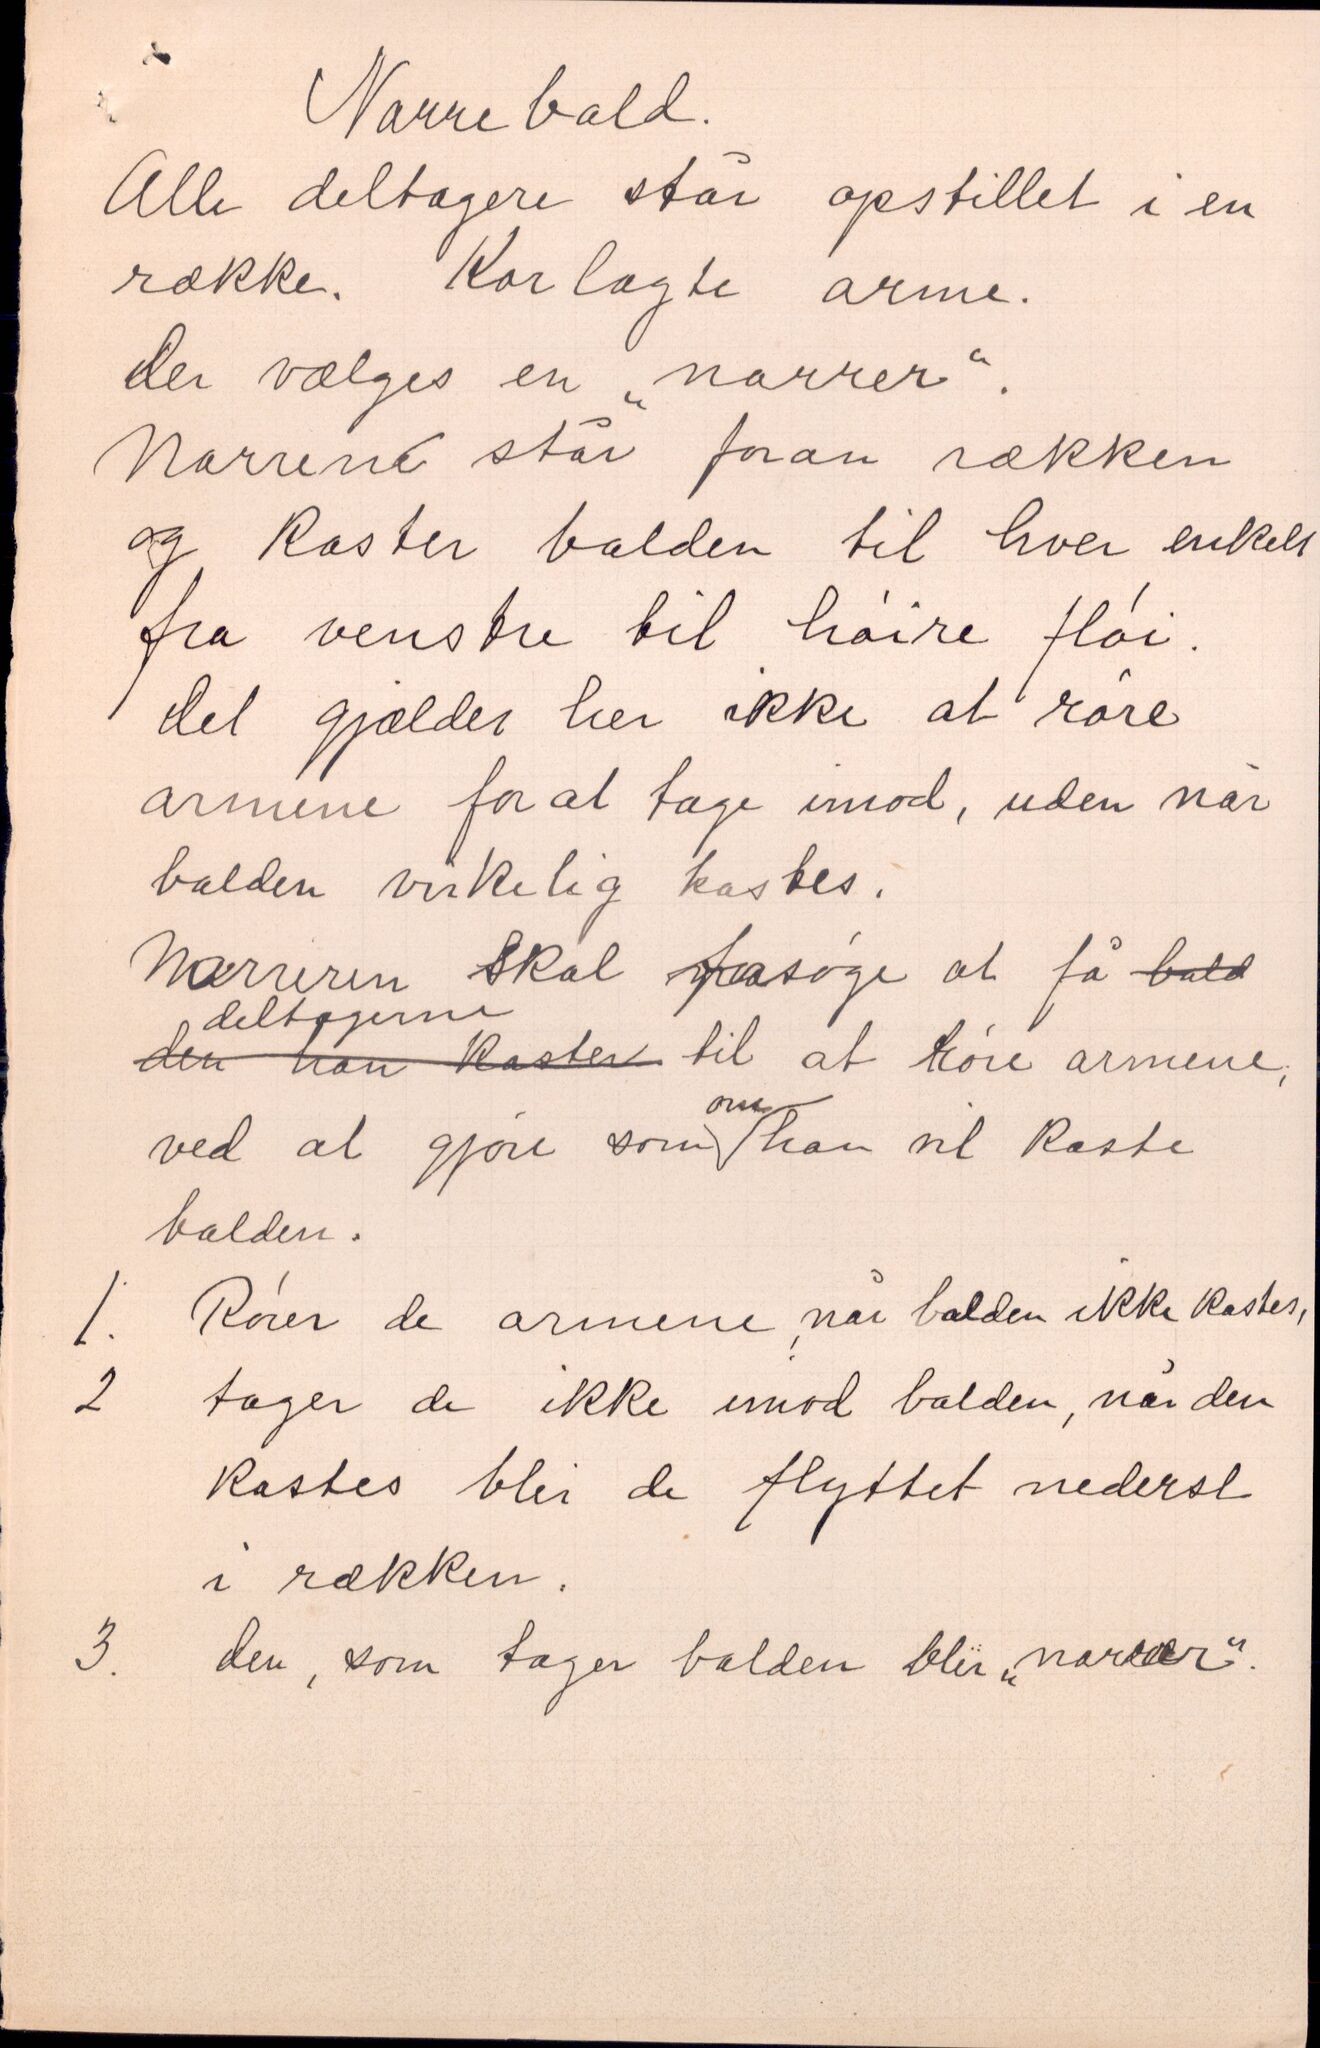 Narrebald.
Alle deltagere står opstillet i en
række. Korlagte arme.
Der vælges en „narrer“.
Narrene står foran rækken
og kaster balden til hver enkelt
fra venstre til höire flöi.
Det gjælder her ikke at röre
armene forat tage imod, uden når
balden virkelig kastes.
Narreren skal forsöge at få bald
deltagerne
den han kaster til at röre armene,
ved at gjöre som om han vil kaste
balden.
1. Rörer de armene, når balden ikke kastes,
2 tager de ikke imod balden, når den
kastes blir de flyttet nederst
i rækken.
3. Den, som tager balden blir „narrer“.